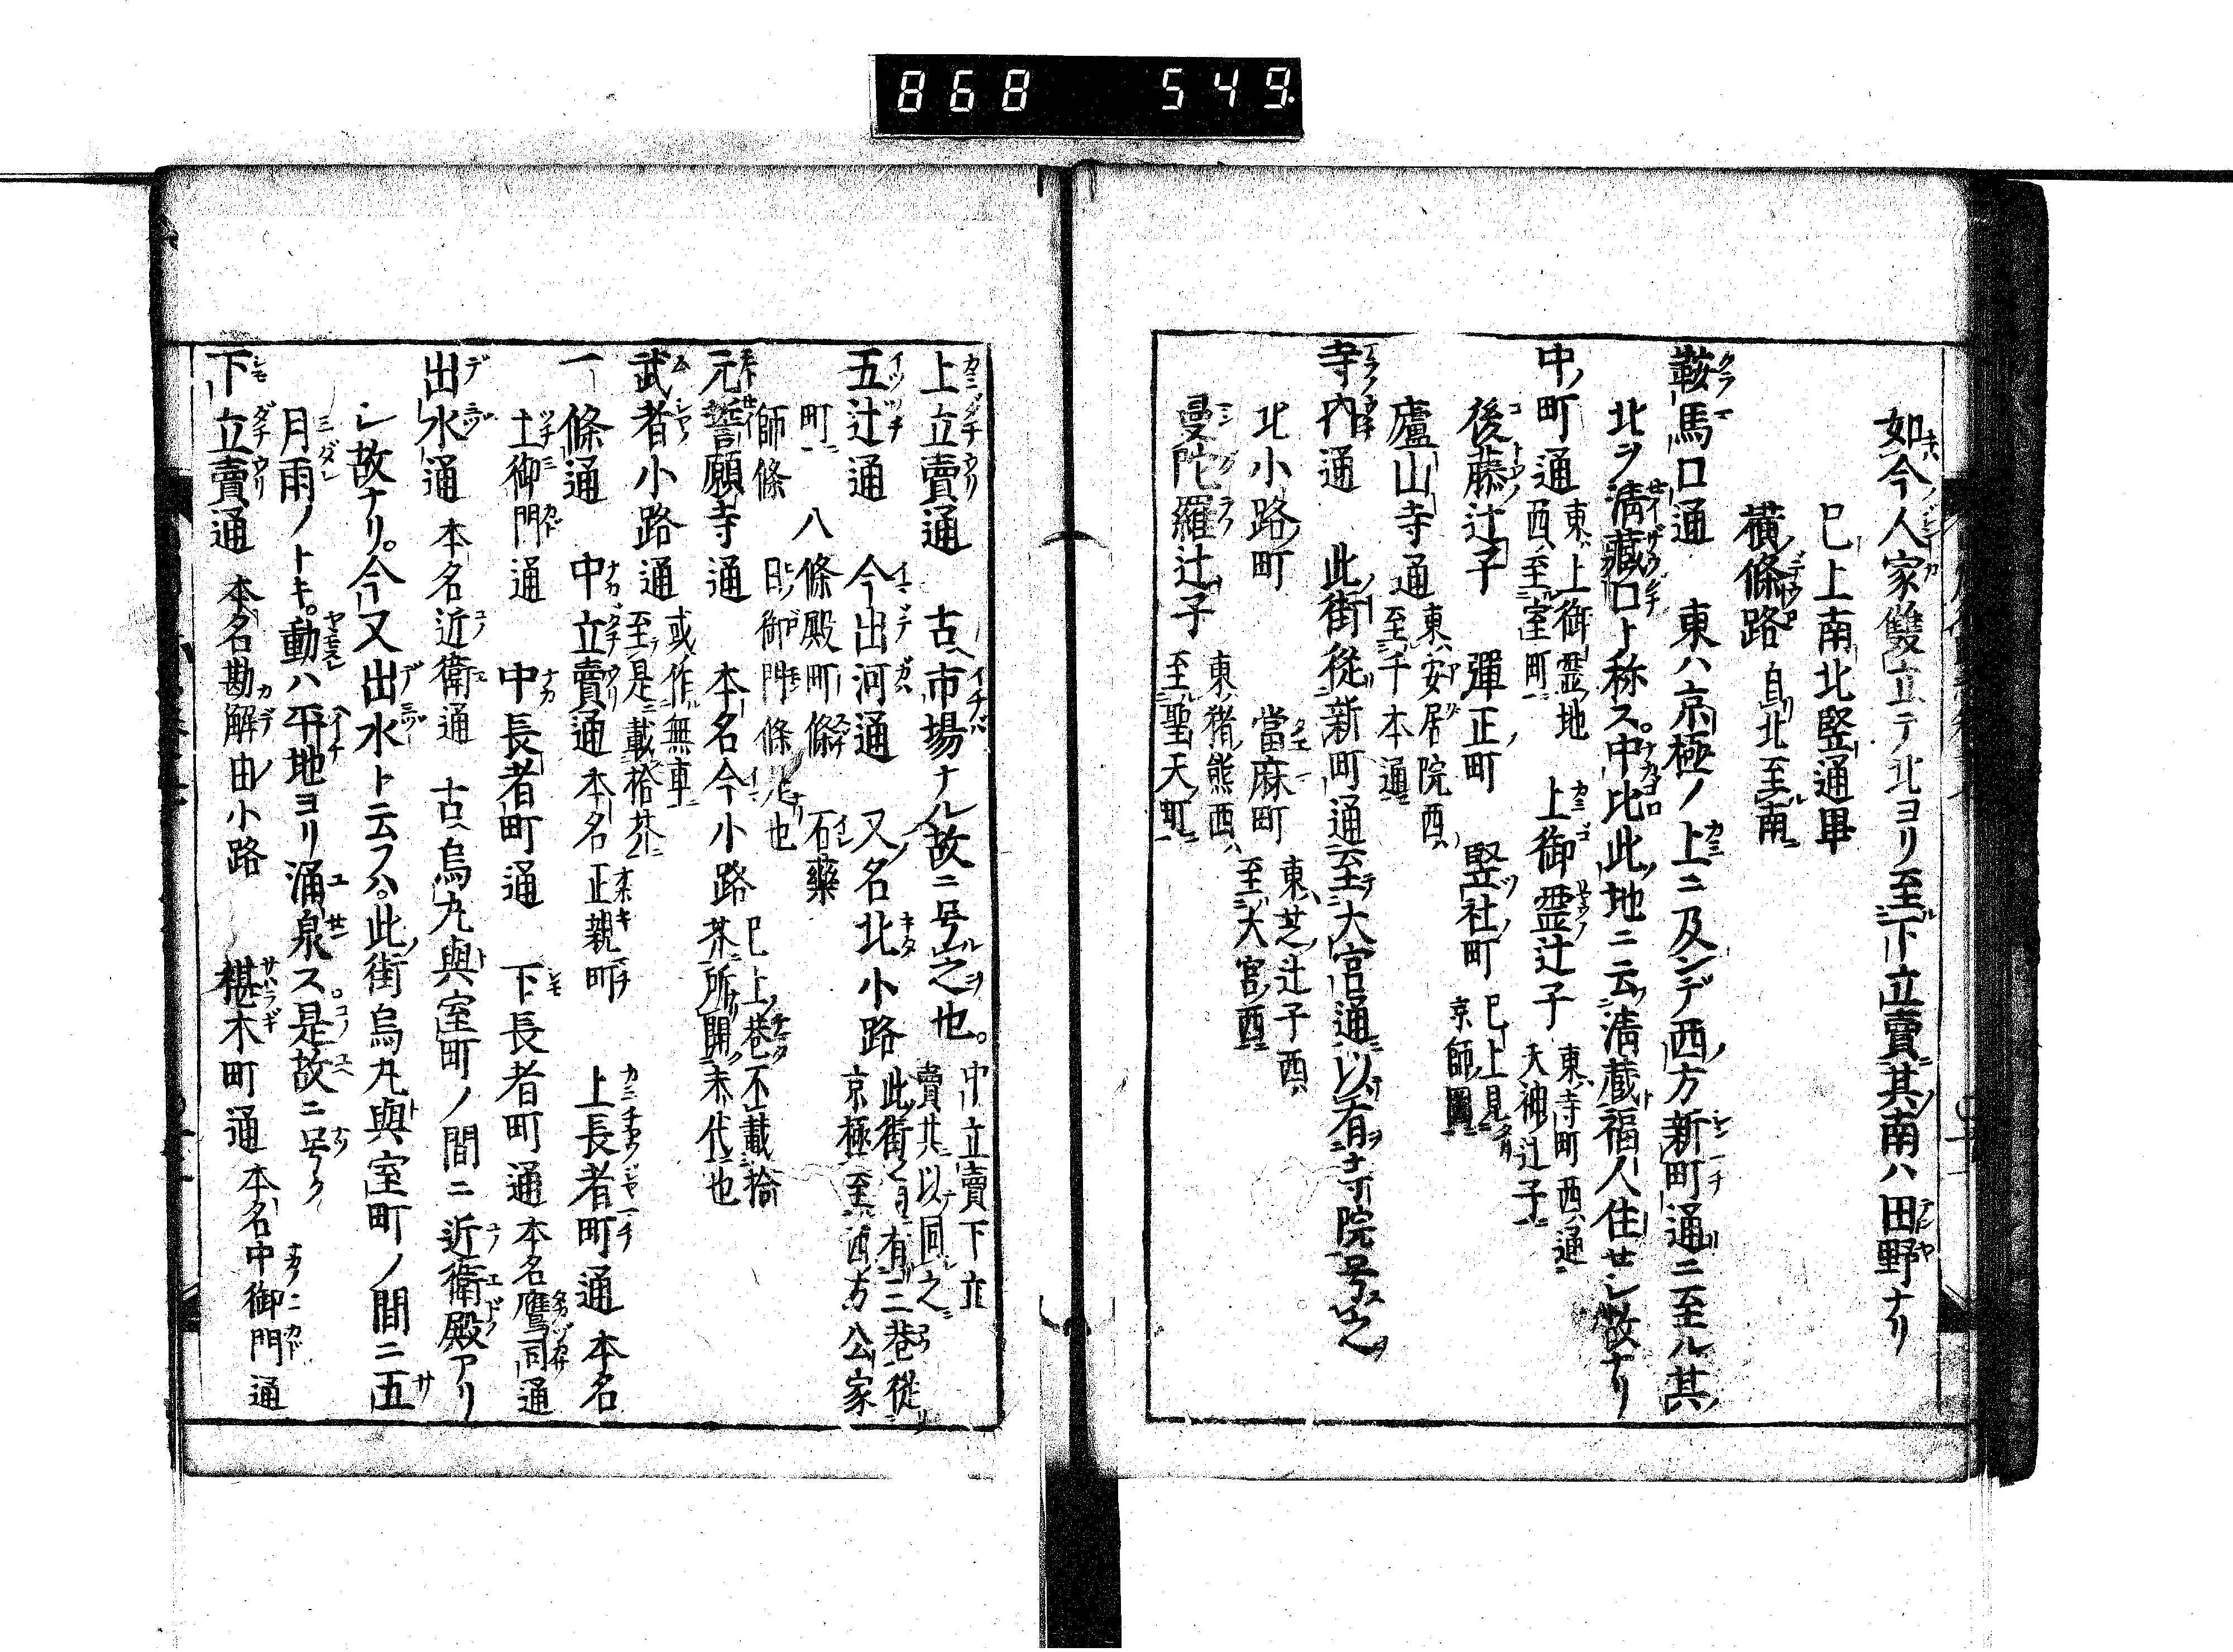 868 549
如今人家雙立テ北ヨリ至下立賣其南ハ田野ナリ
巳上南北竪通畢
横條路 自北至南
鞍馬口通 東ハ京極ノ上ニ及ンデ西方新町通ニ至ル其
北ヲ淸藏口ト称ス中比此地ニ云淸蔵福人住セシ故ナリ
中ノ町通 東上御霊地 西至室町 上御霊辻子 東寺町西通 天神辻子
後藤辻子 彈正町 竪社町 巳上見 京師圖
廬山寺通 東安居院西 至千本通
寺内通 此街從新町通至大宮通以有寺院号之
北小路町 當麻町 東芝辻子西 至大宮西
曼陀羅辻子 東猪熊西 至聖天町
上立賣通 古市場ナル故ニ号之也 中立賣下立 賣其以同之
五辻通 今出河通 又名北小路 此街有三巷從 京極至西方公家
町 八條殿町條 石藥
師條 日御門條是也
元誓願寺通 本名今小路 巳上巷不載拾 芥所開末代也
武者小路通 或作無車 至是載拾芥
一條通 中立賣通 本名正親町 上長者町通 本名
土御門通 中長者町通 下長者町通 本名鷹司通
出水通 本名近衛通 古烏丸與室町ノ間ニ近衛殿アリ
シ故ナリ今又出水ト云フハ此街烏丸與室町ノ間ニ五
月雨ノトキ動ハ平地ヨリ涌泉ス是故ニ号ク
下立賣通 本名勘解由小路 椹木町通 本名中御門通